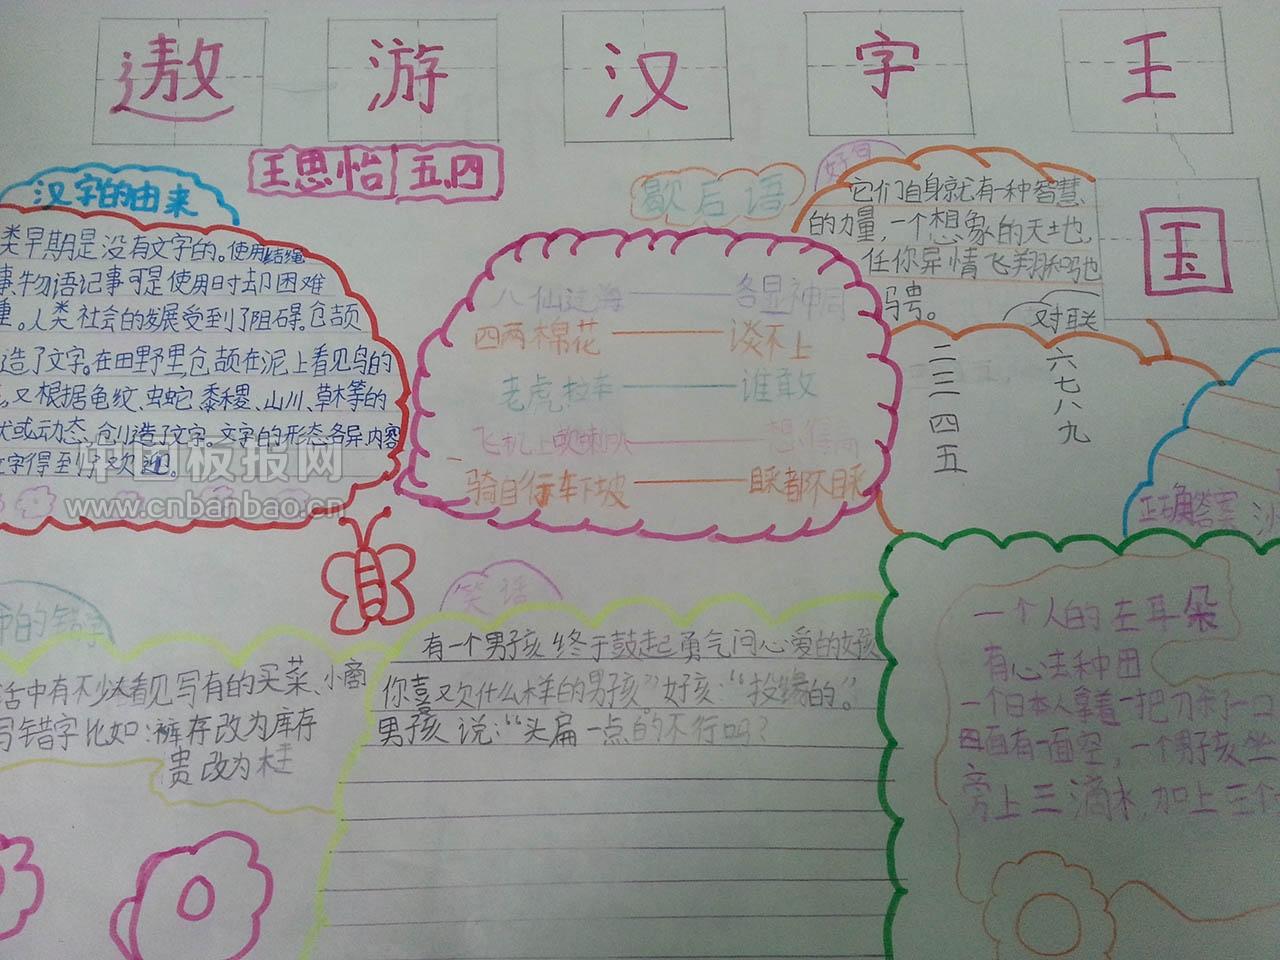 遨 游 汉 字 王
国
王思怡 五.四
汉字的由来
类早期是没有文字的。使用结绳
事、物语记事可是使用时却困难
重。人类社会的发展受到了阻碍。仓颉
造了文字。在田野里仓颉在泥上看见鸟的
又根据龟纹、虫蛇、黍稷、山川、草木等的
状或动态、创造了文字。文字的形态各异内容
文字得到
中国板报网
www.cnbanbao.cn
歇后语
八仙过海——各显神同
四两棉花——谈不上
老虎拉车——谁敢
飞机上吹喇叭——想
骑自行车下坡——睬都不睬
好句
它们自身就有一种智慧
的力量，一个想象的天地，
任你异情飞翔
骋。
对联
二三四五
六七八九
正确答案
的错字
活中有不少
看见写有的买菜、小商
写错字比如：裤存改为库存
贵改为木圭
笑话
有一个男子孩终于鼓起勇气问心爱的女孩
你喜又欠什么样的男孩”女子孩：“投缘的。”
男孩说：“头扁一点的不行吗？
一个人的左耳朵
有心去种田
一个日本人拿着一把刀杀了一口
四面有一面空，一个男子孩坐
旁上三滴水，加上三个